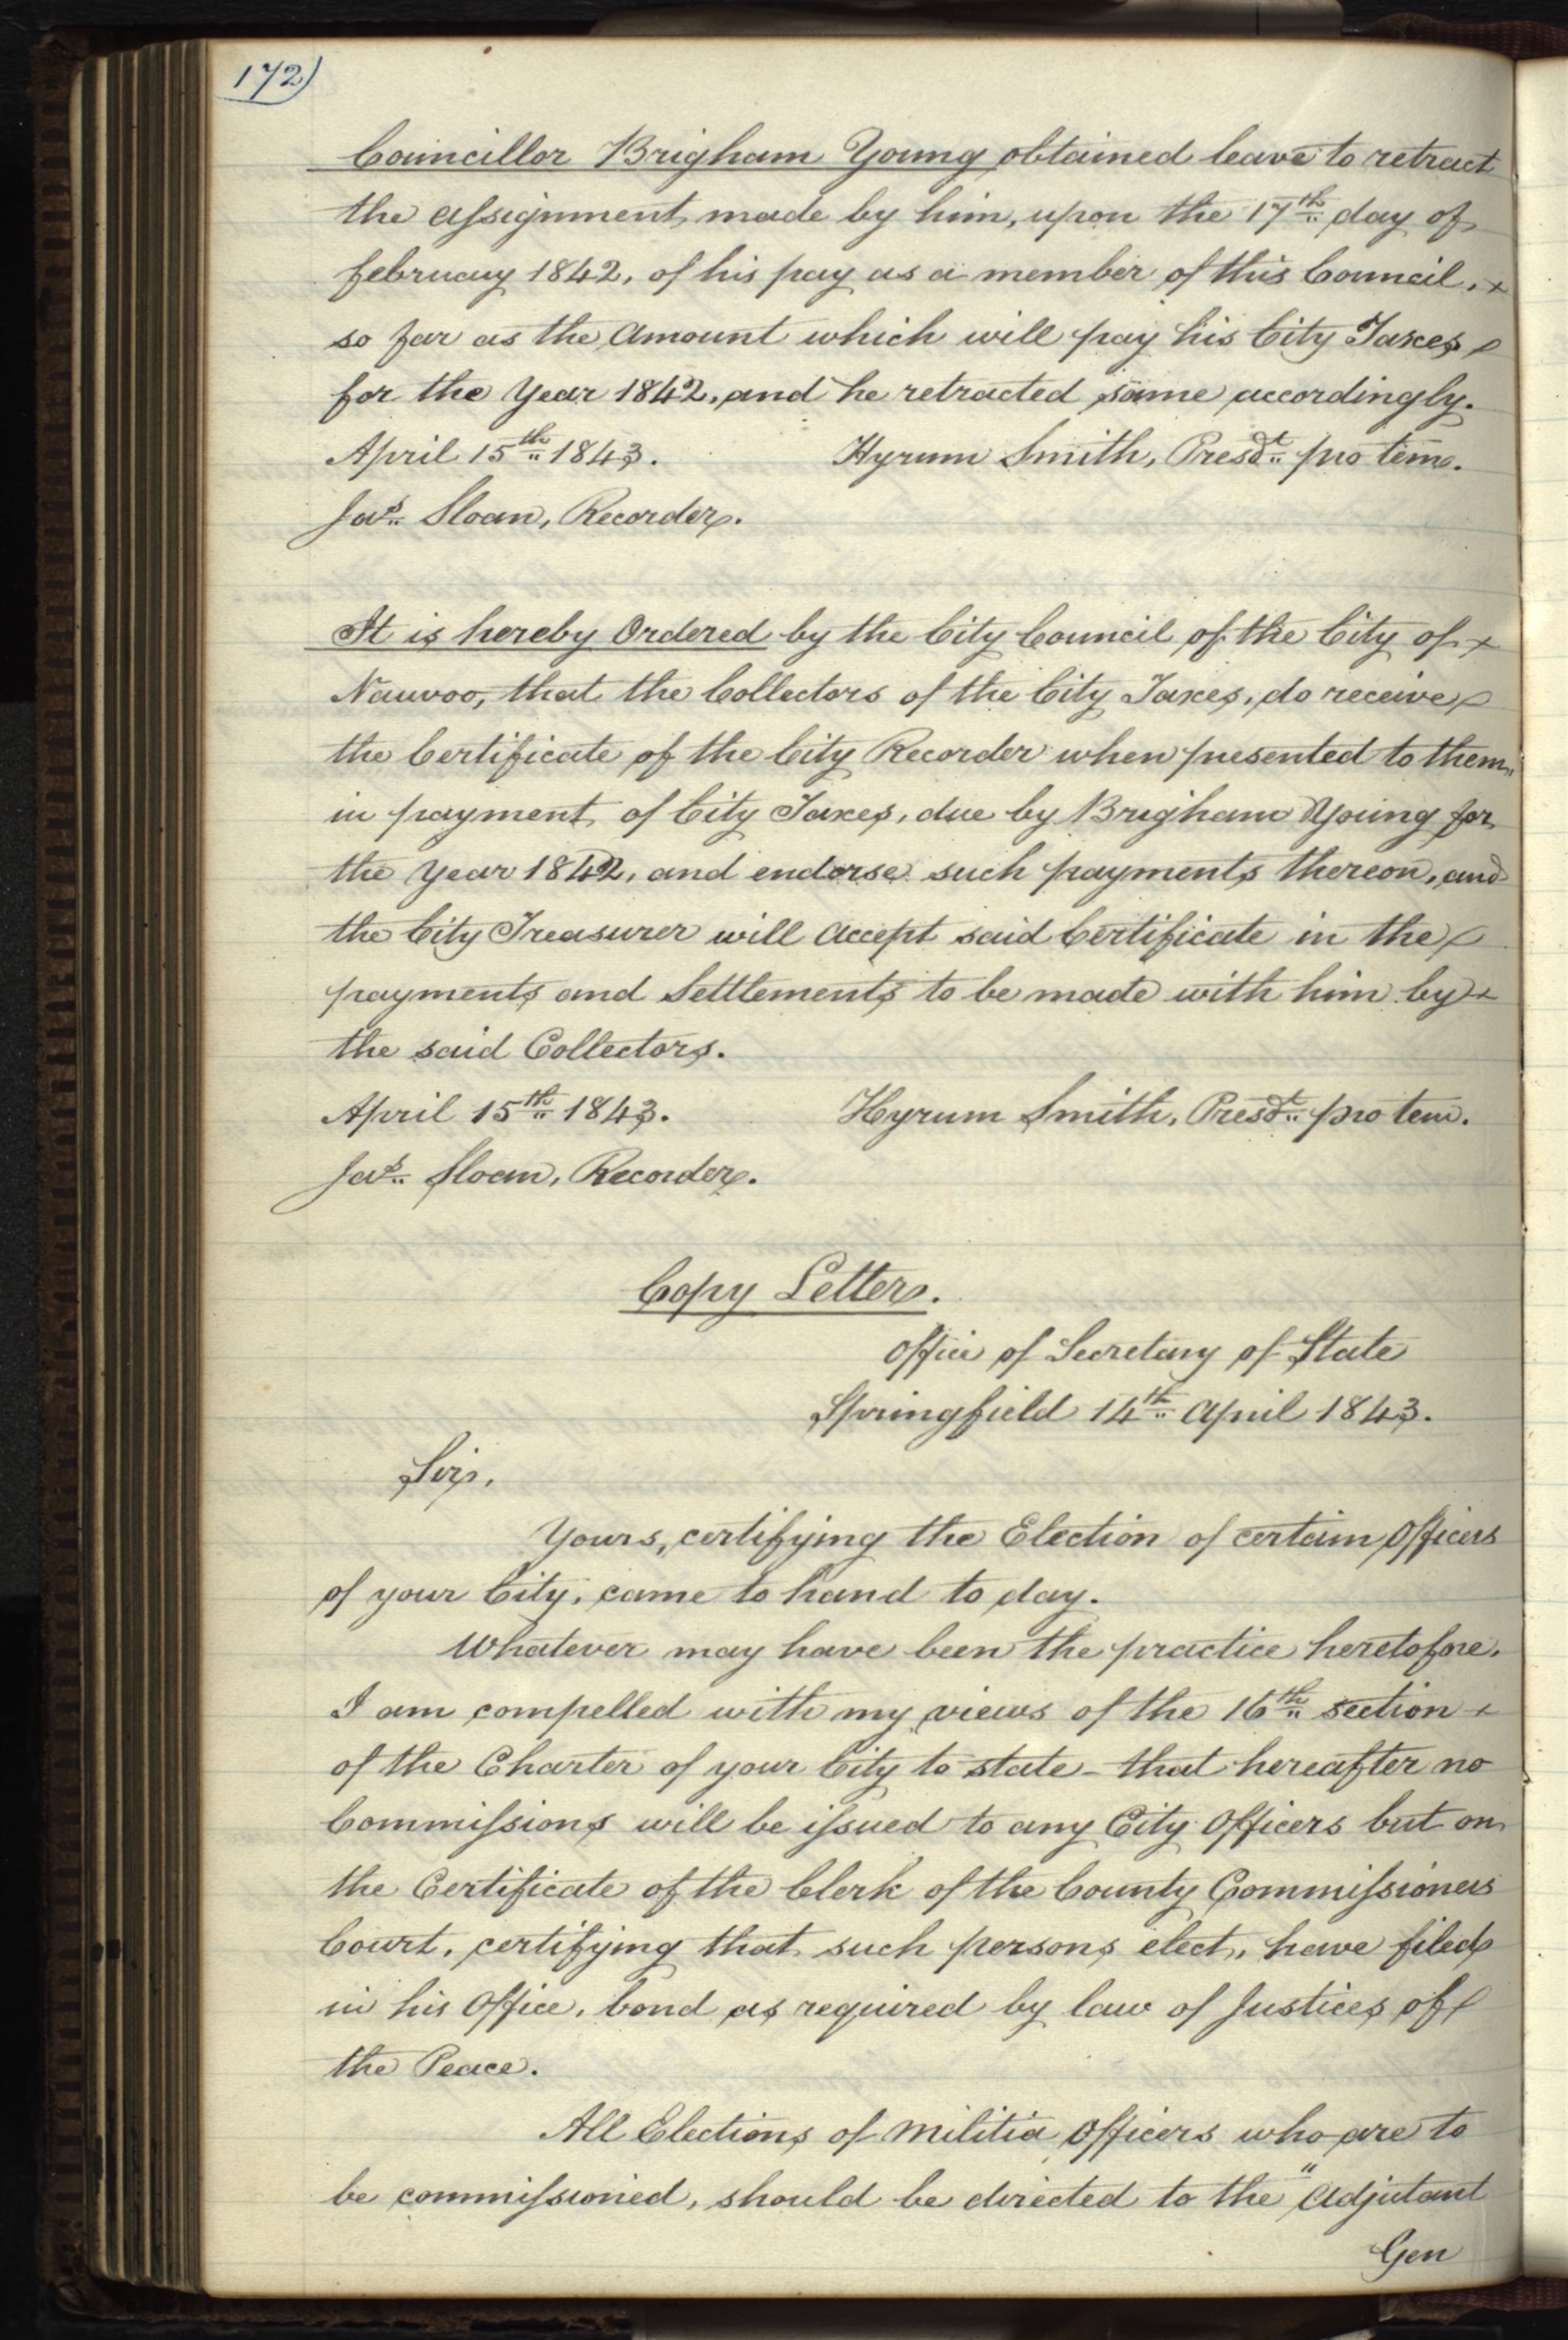 172)
Councillor Brigham Young obtained leave to retract
the assignment made by him, upon the 17th day of
february 1842, of his pay as a member of this Council,
so far as the Amount which will pay his City Taxes
for the Year 1842, and he retracted same accordingly.
April 15th 1843. Hyrum Smith, Presdt pro tem.
Jas Sloan, Recorder.
It is hereby Ordered by the City Council of the City of
Nauvoo, that the Collectors of the City Taxes, do receive
the Certificate of the City Recorder when presented to them,
in payment of City Taxes, due by Brigham Young for
the Year 1842, and endorse such payments thereon, and
the City Treasurer will Accept said Certificate in the
payments and Settlements to be made with him by
the said Collectors.
April 15th 1843. Hyrum Smith, Presdt pro tem.
Jas Sloan, Recorder.
Copy Letter.
Office of Secretary of State
Springfield 14th April 1843.
Sir,
Yours, certifying the Election of certain Officers
of your City, came to hand to day.
Whatever may have been the practice heretofore,
I am compelled with my views of the 16th section
of the Charter of your City to state - that hereafter no
Commissions will be issued to any City Officers but on
the Certificate of the Clerk of the County Commissioners
Court, certifying that such persons elect, have filed
in his Office, bond as required by law of Justices of
the Peace.
All Elections of Militia Officers who are to
be commissioned, should be directed to the "Adjutant
Gen